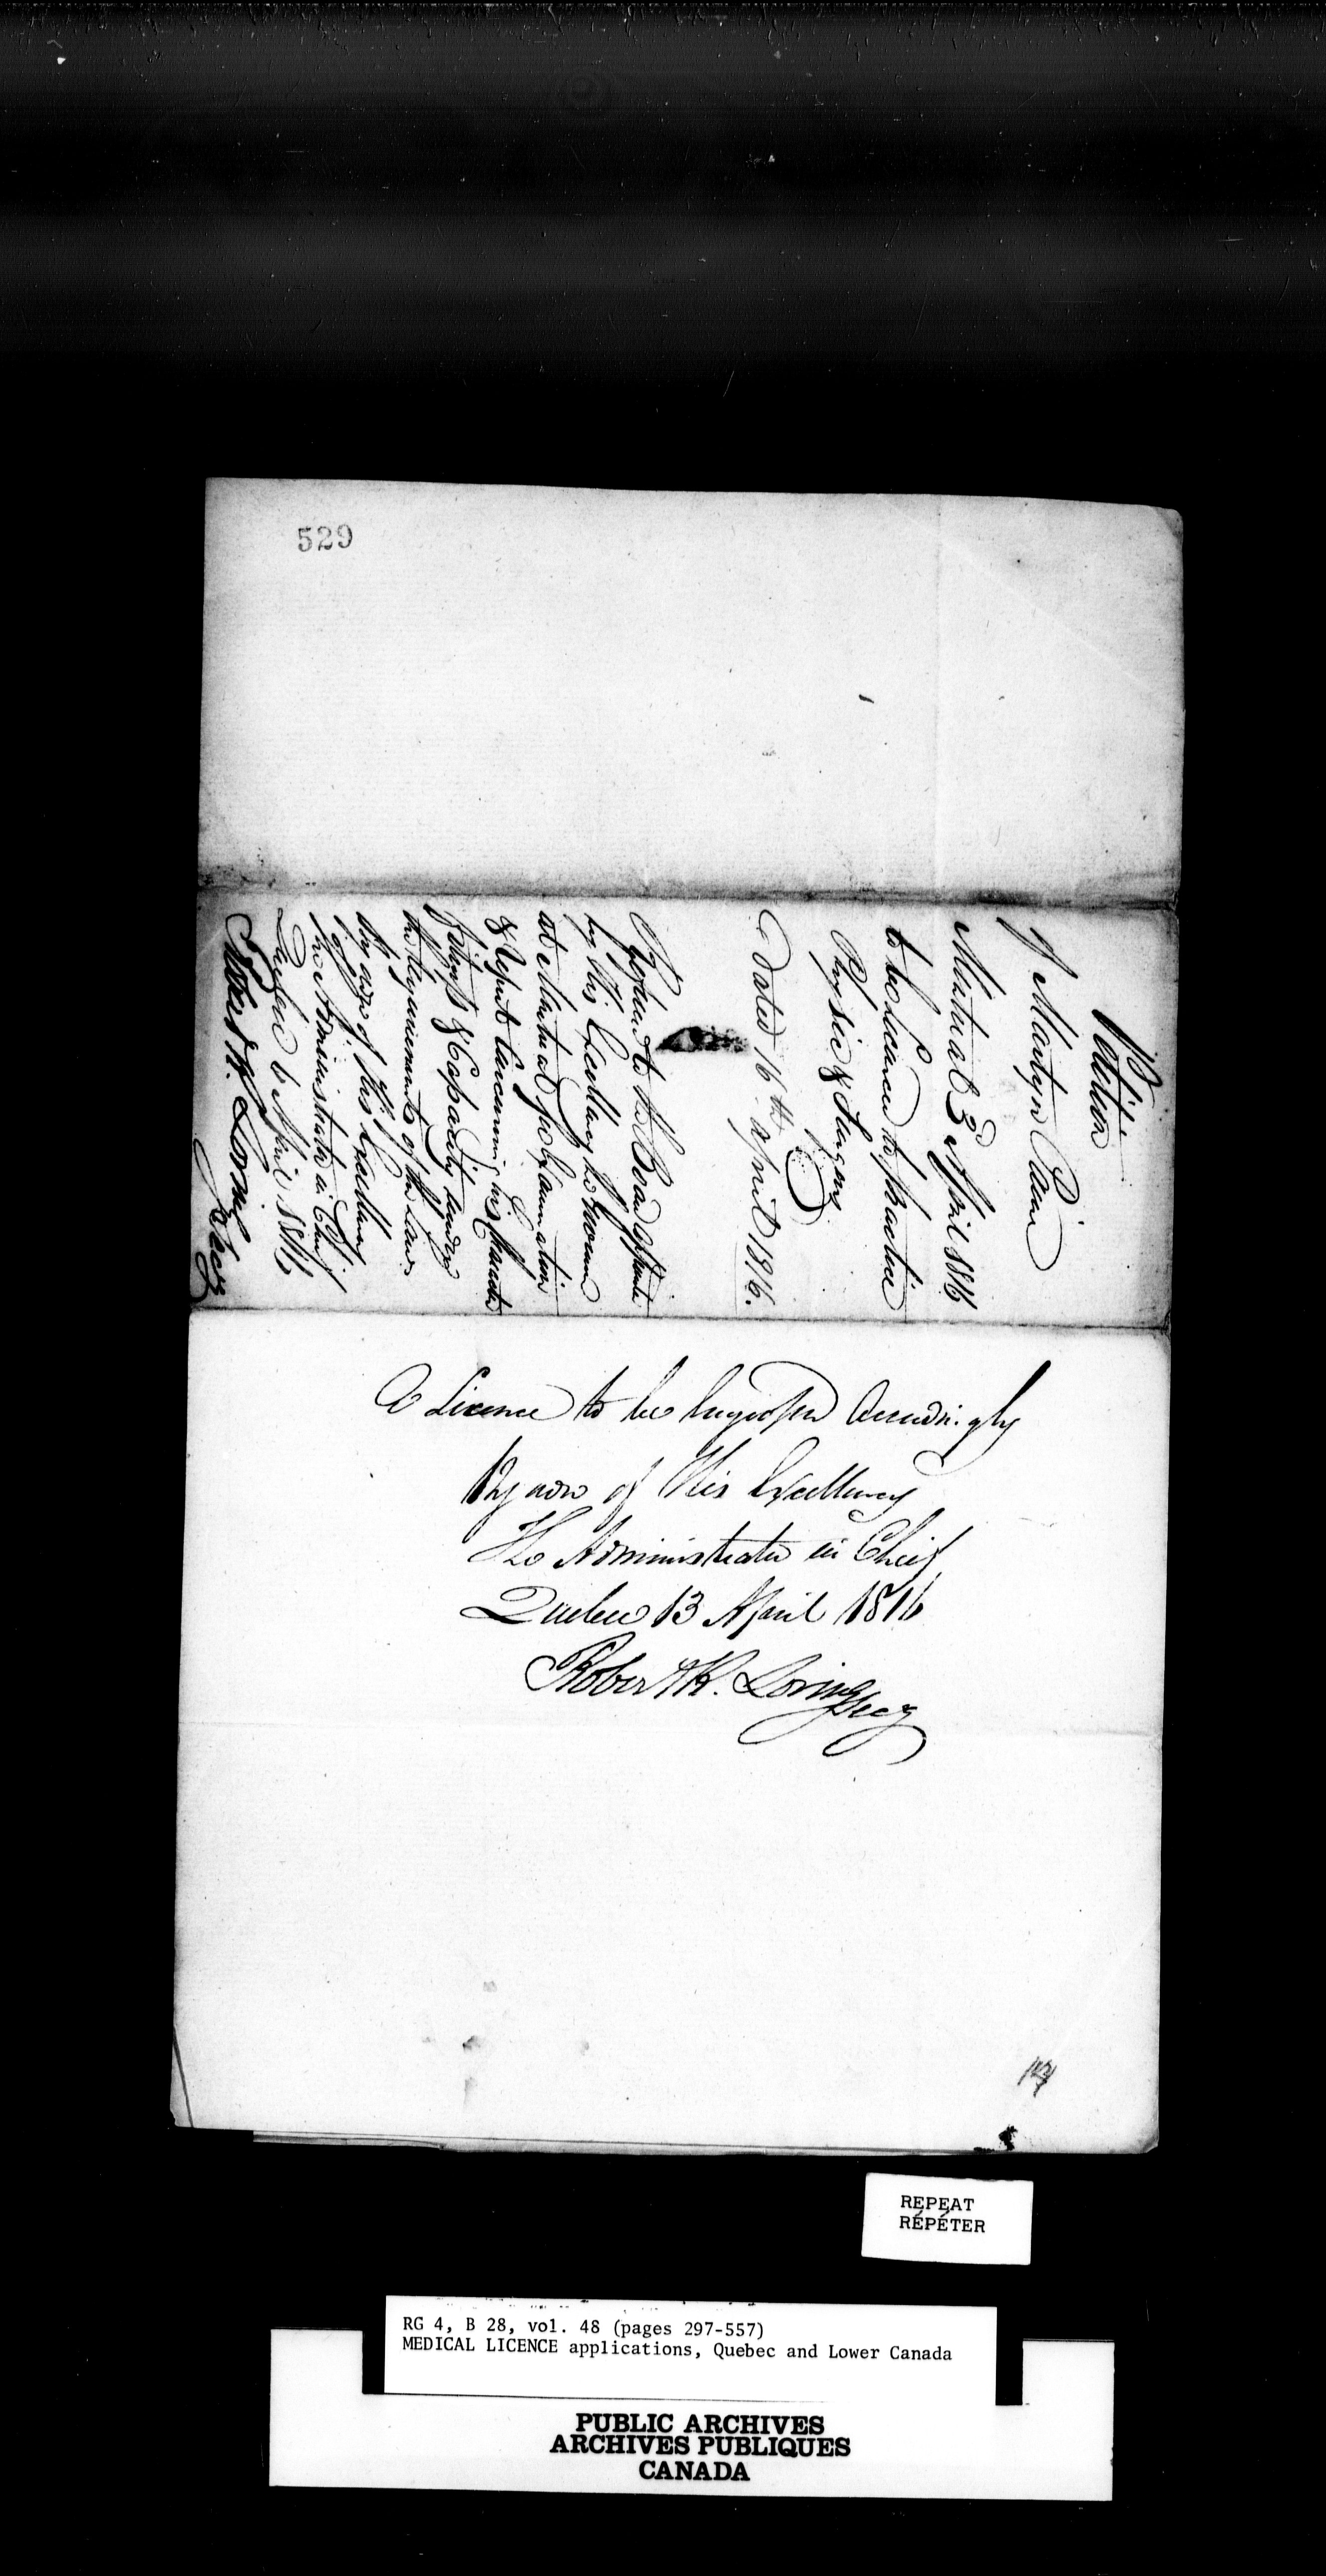 529
Petition
of Martyn Paine
Montreal 3d April 1816
to be licenced to practice
Physic & Surgery
Dated 16th April 1816.
Referred to the Board appointed
by His Excellency to
at Montreal for Examination
& Report concerning his Character
fitness & Capacity under
the requirements of the Law
By order of His Excellency
the Administrator in Chief
Quebec 6 April 1816
Robert R. Loring
Secy
A Licence to be Engrossed Accordingly
By order of His Excellency
The Administrator in Chief
Quebec 13 April 1816
Robert R. Loring Secy
REPEAT
RÉPÉTER
RG 4, B 28, vol. 48 (pages 297-557)
MEDICAL LICENCE applications, Quebec and Lower Canada
PUBLIC ARCHIVES
ARCHIVES PUBLIQUES
CANADA